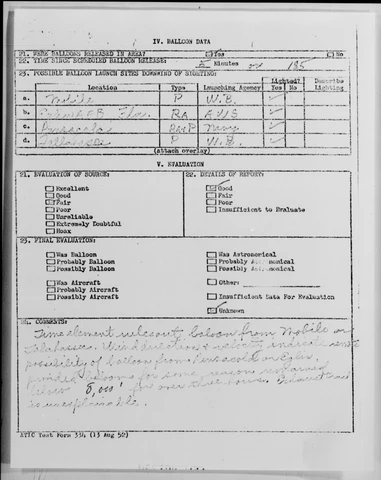 IV. BALLOON DATA
21. WERE BALLOONS RELEASED IN AREA? Yes No
22. TIME SINCE SCHEDULED BALLOON RELEASE: 5 Minutes or 185
23. POSSIBLE BALLOON LAUNCH SITES DOWNWIND OF SIGHTING:
Location Type Launching Agency Lighted? Yes No Describe Lighting
a. Mobile P W.B.
b. Fla. RA AWS
c. Pensacola P Navy
d. Tallahassee P W.B.
(attach overlay)
V. EVALUATION
21. EVALUATION OF SOURCE: 22. DETAILS OF REPORT:
Excellent Good
Good Fair
Fair Poor
Poor Insufficient to Evaluate
Unreliable
Extremely Doubtful
Hoax
23. FINAL EVALUATION:
Was Balloon Was Astronomical
Probably Balloon Probably Astronomical
Possibly Balloon Possibly Astronomical
Was Aircraft Other:
Probably Aircraft
Possibly Aircraft Insufficient Data For Evaluation
Unknown
24. COMMENTS:
Time element rules out baloon from Mobile or
Tallahassee. Wind direction & velocity indicate
possibility of balloon from Pensacola or Eglin,
provided balloons for some reason remained
below 8,000' for over three hours.
is unexplainable.
ATIC Test Form 334 (13 Aug 52)